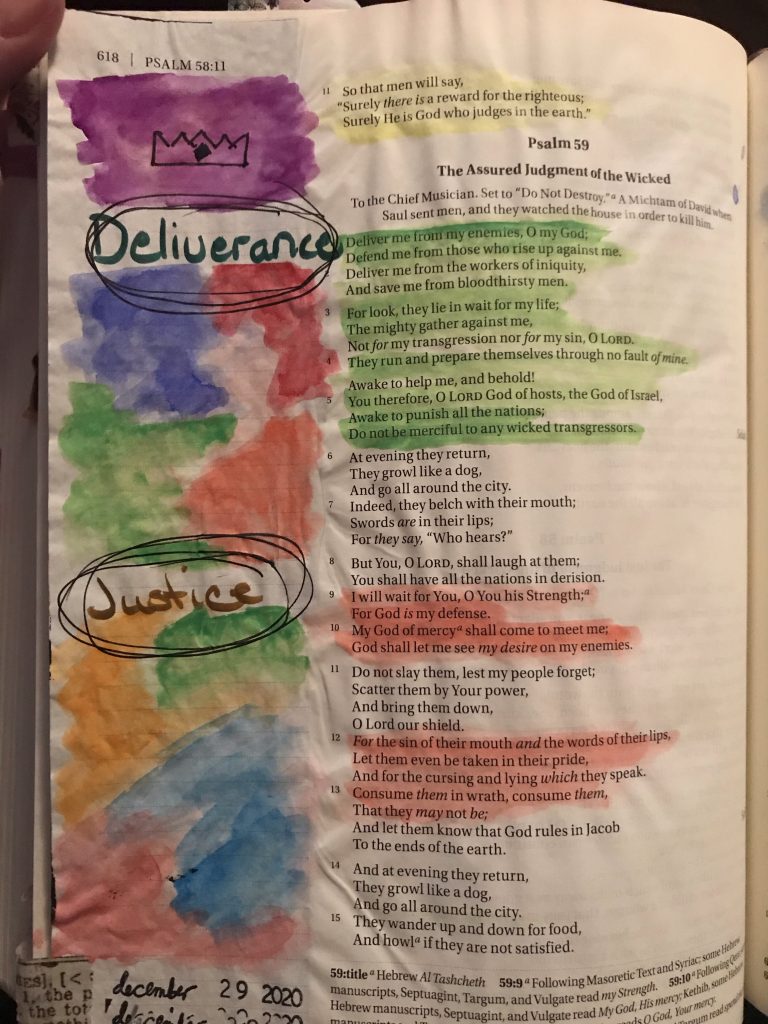 618 | PSALM 58:11
11 So that men will say,
“Surely there is a reward for the righteous;
Surely He is God who judges in the earth.”
Psalm 59
The Assured Judgment of the Wicked
To the Chief Musician. Set to “Do Not Destroy.”a A Michtam of David when
Saul sent men, and they watched the house in order to kill him.
Deliverance
Deliver me from my enemies, O my God;
Defend me from those who rise up against me.
2 Deliver me from the workers of iniquity,
And save me from bloodthirsty men.
3 For look, they lie in wait for my life;
The mighty gather against me,
Not for my transgression nor for my sin, O LORD.
4 They run and prepare themselves through no fault of mine.
Awake to help me, and behold!
5 You therefore, O LORD God of hosts, the God of Israel,
Awake to punish all the nations;
Do not be merciful to any wicked transgressors.
6 At evening they return,
They growl like a dog,
And go all around the city.
7 Indeed, they belch with their mouth;
Swords are in their lips;
For they say, “Who hears?”
Justice
8 But You, O LORD, shall laugh at them;
You shall have all the nations in derision.
9 I will wait for You, O You his Strength;a
For God is my defense.
10 My God of mercya shall come to meet me;
God shall let me see my desire on my enemies.
11 Do not slay them, lest my people forget;
Scatter them by Your power,
And bring them down,
O Lord our shield.
12 For the sin of their mouth and the words of their lips,
Let them even be taken in their pride,
And for the cursing and lying which they speak.
13 Consume them in wrath, consume them,
That they may not be;
And let them know that God rules in Jacob
To the ends of the earth.
14 And at evening they return,
They growl like a dog,
And go all around the city.
15 They wander up and down for food,
And howla if they are not satisfied.
december 29 2020
59:title a Hebrew Al Tashcheth 59:9 a Following Masoretic Text and Syriac; some Hebrew
manuscripts, Septuagint, Targum, and Vulgate read my Strength. 59:10 a Following
Hebrew manuscripts, Septuagint, and Vulgate read My God, His mercy; Kethib, some Hebrew
O God, Your mercy.